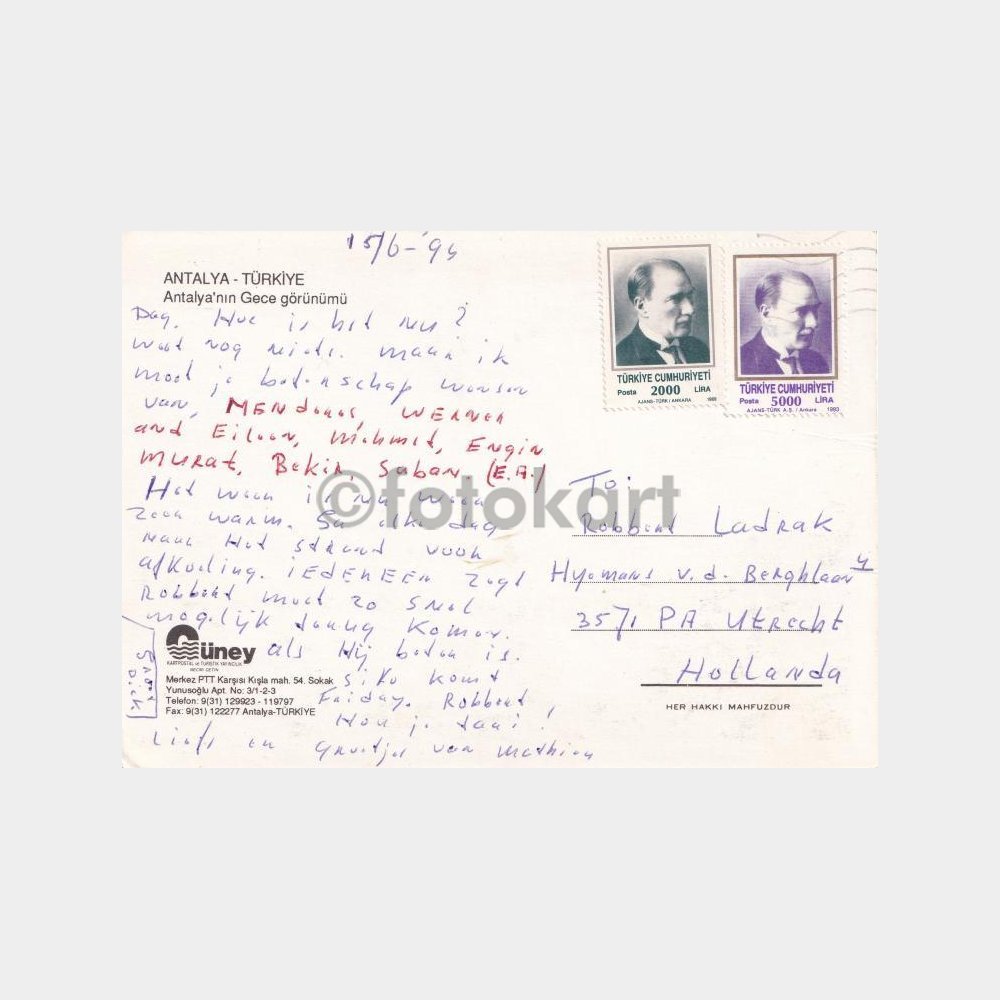 15/6-'94
ANTALYA - TÜRKİYE
Antalya'nın Gece görünümü
Dag. Hoe is het nu?
wat nog niets. maar ik
moet je boterschap wensen
van, MENderes WERNER
and Eileen, Mehmet, Engin
MURat, Bekir, Saban. (E.A.)
Het weer is nu weer
Zeer warm. Sa elke dag
naar Het strand voor
afkoeling. iEDEREEN Zegt
Robbert moet zo snel
mogelijk terug komen.
als Hij beter is.
Siko komt
Friday. Robbert,
Hou je taai!
Liefs en Groetjes van Mathieu
Güney
KARTPOSTAL ve TURİSTİK YAYINCILIK
NECMİ ÇETİN
Merkez PTT Karşısı Kışla mah. 54. Sokak
Yunusoğlu Apt. No: 3/1-2-3
Telefon: 9(31) 129923 - 119797
Fax: 9(31) 122277 Antalya-TÜRKİYE
TÜRKİYE CUMHURİYETİ
Posta 2000 LİRA
AJANS-TÜRK / ANKARA 1989
TÜRKİYE CUMHURİYETİ
Posta 5000 LİRA
AJANS-TÜRK A.Ş. / Ankara 1993
©fotokart
To:
Robbert Ladrak
Hyemans v.d. Berghlaan 4
3571 PA Utrecht
Hollanda
HER HAKKI MAHFUZDUR